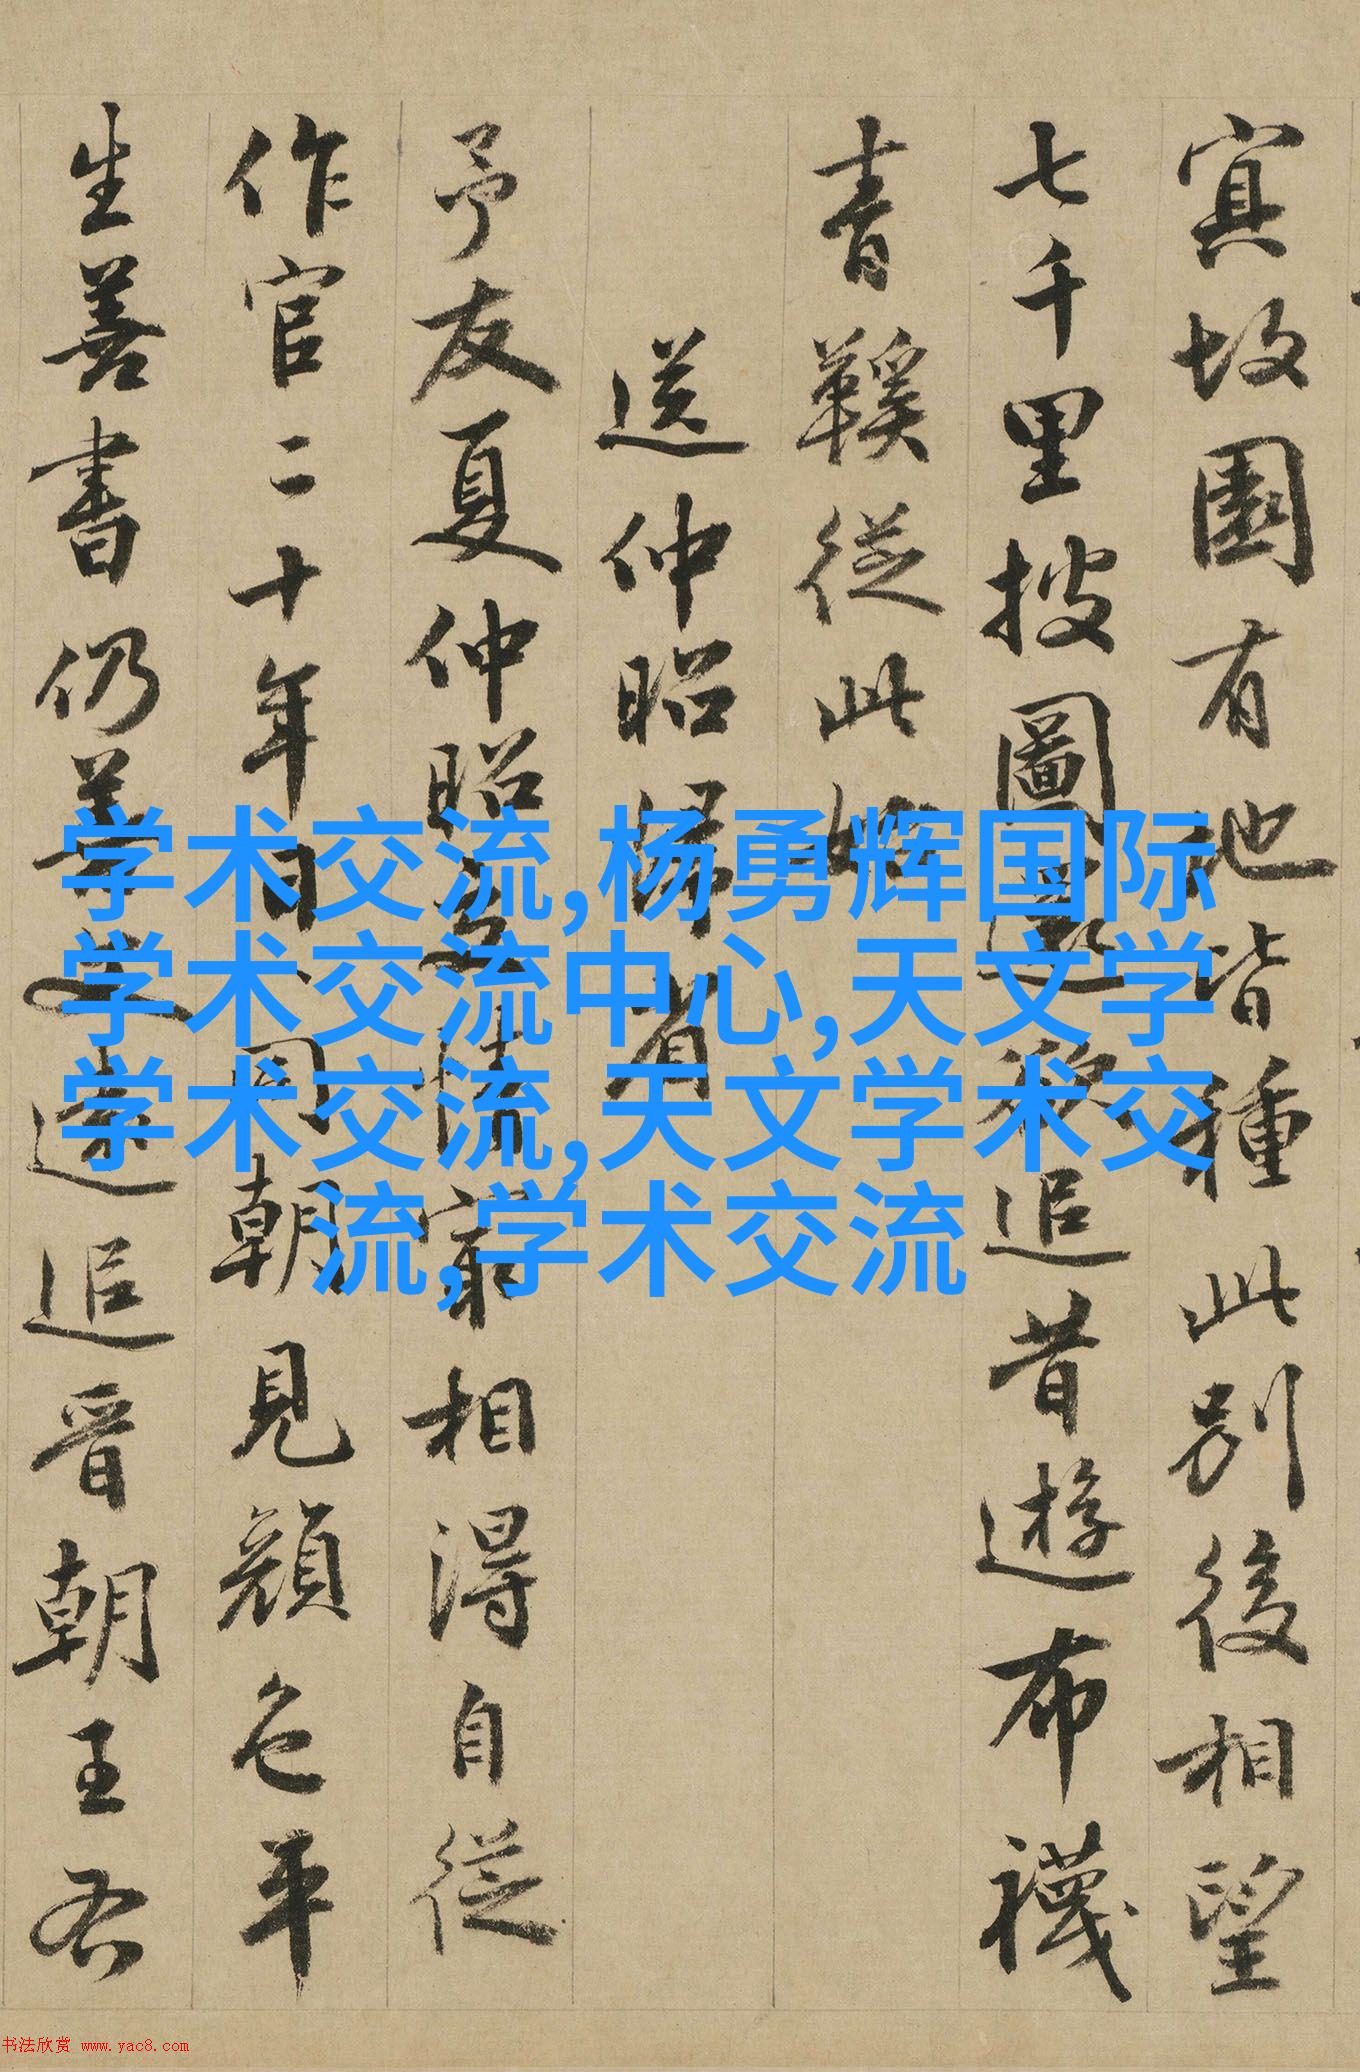 故園有地皆種此別後相望
七千里披圖欲追昔遊布襪
青鞵從此始
送仲昭歸省
予友夏仲昭交情最相得自從
作官二十年日同朝見顏色平
生善書仍善遠追晉朝王右
学术交流,杨勇辉国际
学术交流中心,天文学
学术交流,天文学术交
流,学术交流
书法欣赏 www.yac8.com